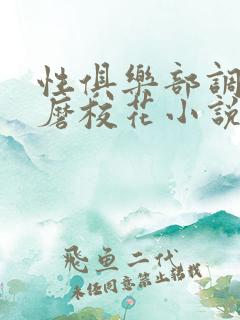 性俱樂部調
磨校花小說
飛魚二代
未经同意禁止转载